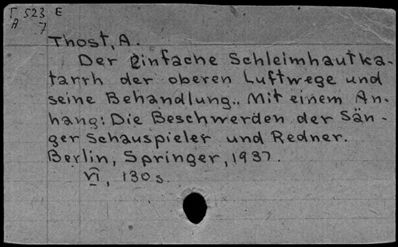 T 523 E
A 7
Thost, A.
Der Einfache Schleimhautka-
tarrh der oberen Luftwege und
seine Behandlung.. Mit einem An-
hang: Die Beschwerden der Sän-
ger Schauspieler und Redner.
Berlin, Springer, 1937.
VI, 130 s.